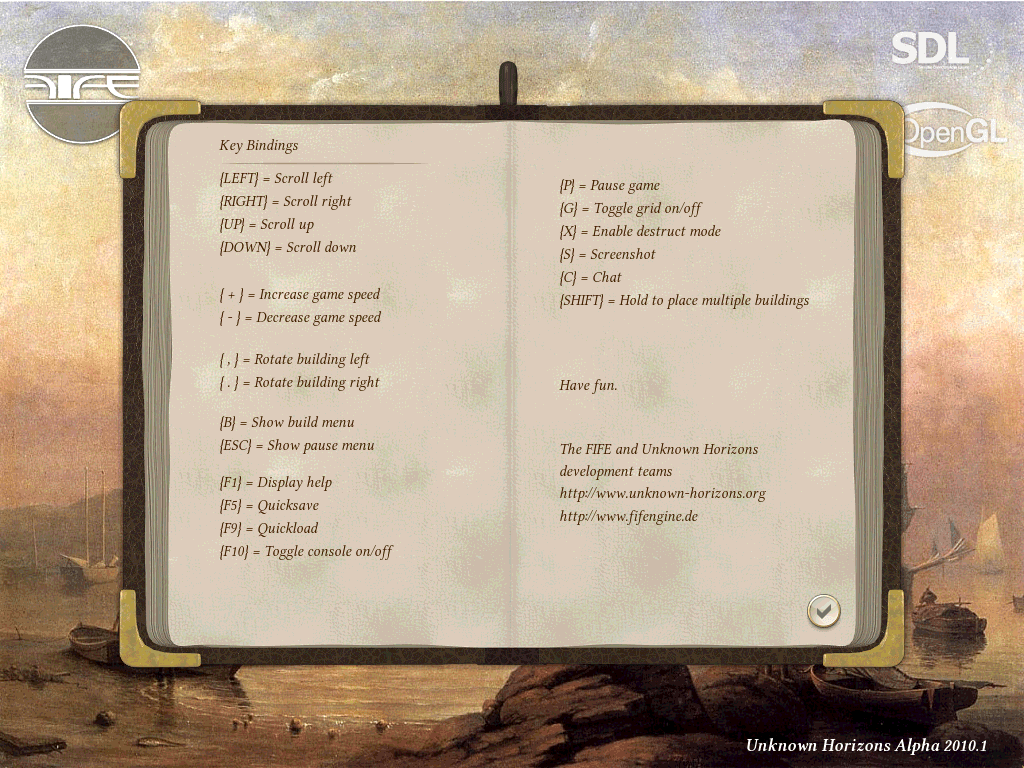 FIFE
SDL
OpenGL
Key Bindings
{LEFT} = Scroll left
{RIGHT} = Scroll right
{UP} = Scroll up
{DOWN} = Scroll down
{ + } = Increase game speed
{ - } = Decrease game speed
{ , } = Rotate building left
{ . } = Rotate building right
{B} = Show build menu
{ESC} = Show pause menu
{F1} = Display help
{F5} = Quicksave
{F9} = Quickload
{F10} = Toggle console on/off
{P} = Pause game
{G} = Toggle grid on/off
{X} = Enable destruct mode
{S} = Screenshot
{C} = Chat
{SHIFT} = Hold to place multiple buildings
Have fun.
The FIFE and Unknown Horizons
development teams
http://www.unknown-horizons.org
http://www.fifengine.de
Unknown Horizons Alpha 2010.1